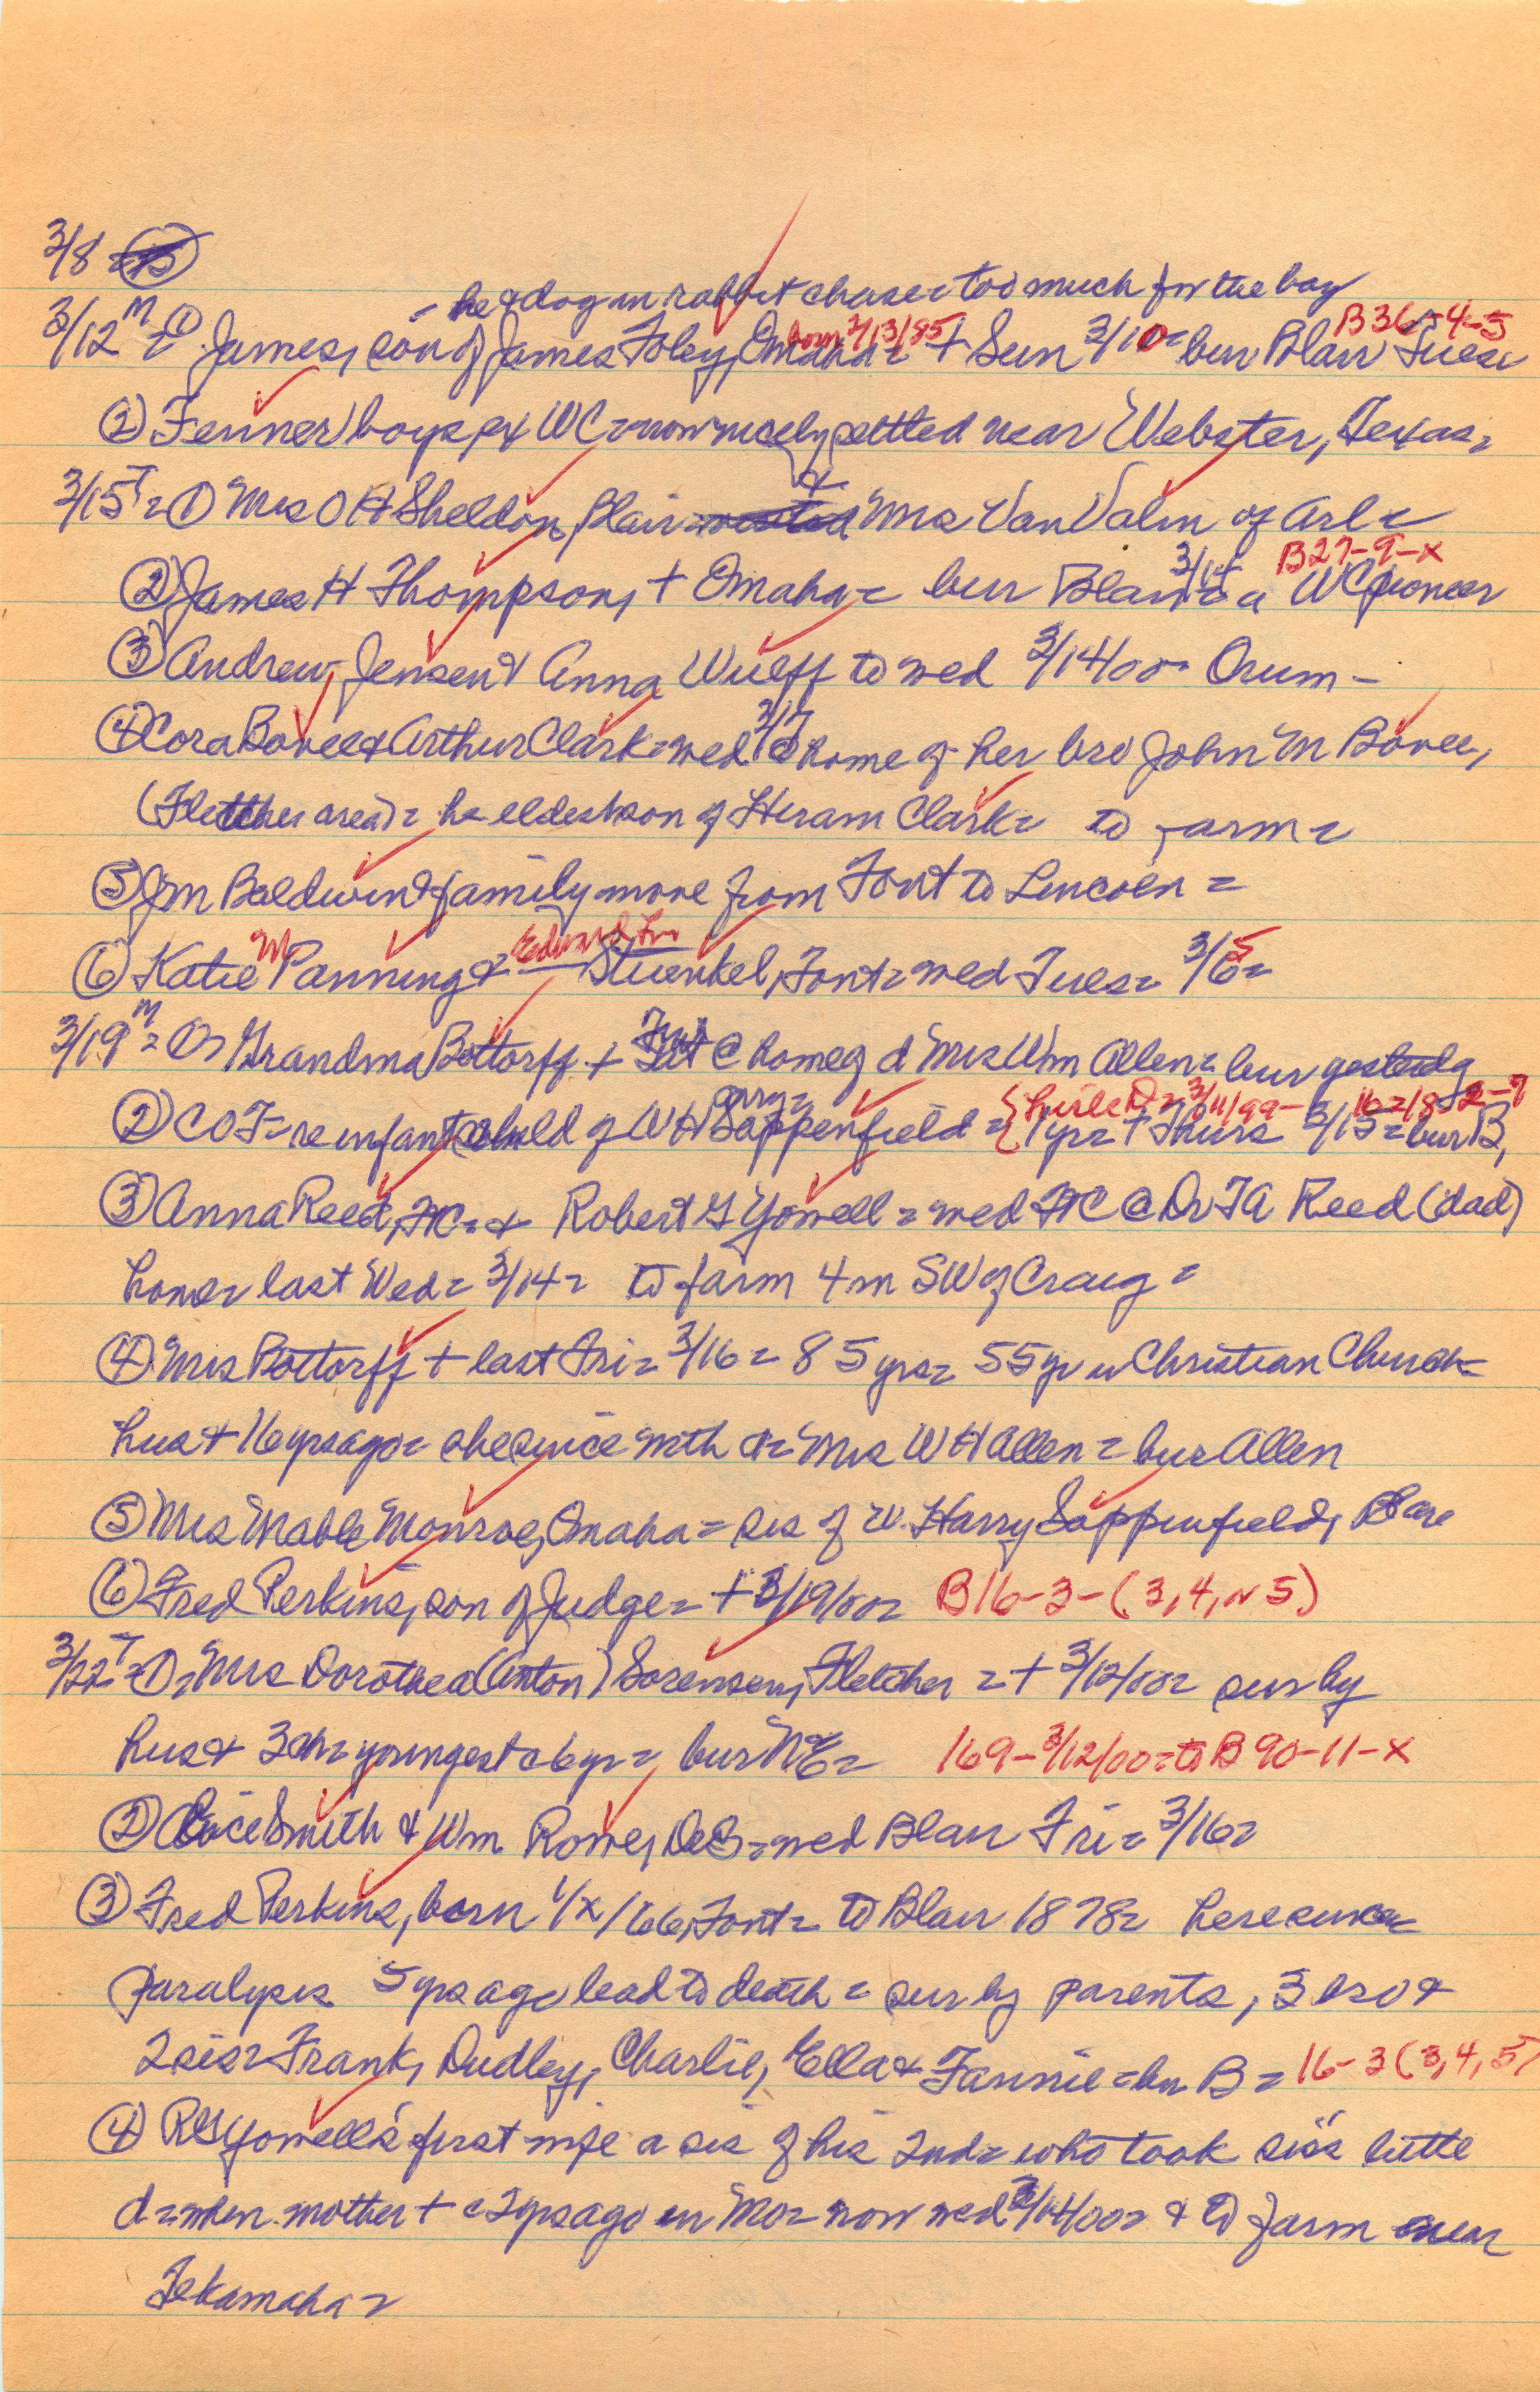 3/8
= he & dog in rabbit chase = too much for the boy
3/12 M = ① James, son of James Foley, Omaha = born 2/13/85 + Sun 3/10 = bur Blair Tues = B36-4-5
② Fenner boys, ex WC = now nicely settled near Webster, Texas =
3/15 T = ① Mrs O H Sheldon, Blair & Mrs Van Valin of Arl =
② James H Thompson, + Omaha = bur Blair 3/14 = a WC pioneer B27-9-x
③ Andrew Jensen & Anna Wulff to wed 3/14/00 = Orum -
④ Cora Bovee & Arthur Clark = wed 3/7 @ home of her bro John M Bovee,
(Fletcher area) = he eldest son of Hiram Clark = to farm =
⑤ Jm Baldwin & family move from Font to Lincoln =
⑥ Katie M Panning & Edward Fr Stuenkel, Font = wed Tues = 3/6 =
3/19 M = ① = Grandma Bottorff + @ home of d Mrs Wm Allen = bur yesterdy
② COF = re infant child of W Harry Sappenfield = { 1yr = + Thurs 3/15 = bur B, 16=18-2-7
③ Anna Reed, HC = & Robert G Yowell = wed HC @ Dr TA Reed (dad)
home last Wed = 3/14 = to farm 4m SW of Craig =
④ Mrs Bottorff + last Fri = 3/16 = 85 yrs = 55 yr in Christian Church =
hus + 16 yrs ago = she since with d = Mrs W H Allen = bur Allen
⑤ Mrs Mable Monroe, Omaha = sis of W. Harry Sappenfield, B are
⑥ Fred Perkins, son of Judge = + 3/19/00 = B16-3-(3,4, or 5)
3/22 T = ① = Mrs Dorothea (Anton) Sorensen, Fletcher = + 3/12/00 = sur by
hus & 3 ch = youngest c 6 yr = bur NE = 169-3/12/00 = to B 90-11-x
② Smith & Wm Rowe, DeS = wed Blair Fri = 3/16 =
③ Fred Perkins, born 1/x/66, Font = to Blair 1878 = here since =
Paralysis 5 yrs ago lead to death = sur by parents, 3 bro &
2 sis = Frank, Dudley, Charlie, Ella & Fannie = bur B = 16-3 (3,4,5)
④ RG Yowell's first wife a sis of his 2nd = who took sis's little
d = when mother + c 2 yrs ago in Mo = now wed 3/14/00 = & to farm near
Tekamah =